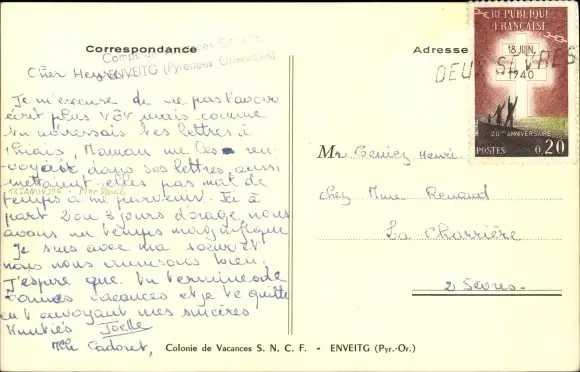 Correspondance
Camps de Vacances S.N.C.F.
ENVEITG (Pyrénées Orientales)
Cher Henri
Je m'excuse de ne pas t'avoir
écrit plus tôt mais comme
tu adressais tes lettres à
Thiais, Maman me les ren-
voyait dans ses lettres aussi
mettaient elles pas mal de
temps à me parvenir. Ici à
part 2 ou 3 jours d'orage nous
avons un temps magnifique
Je suis avec ma sœur et
nous nous amusons bien.
J'espère que tu termines de
bonnes vacances et je te quitte
en t'envoyant mes sincères
Amitiés Joëlle
Mlle Cadoret,
Adresse
DEUX SEVRES
REPUBLIQUE
FRANÇAISE
18 JUIN
1940
20e ANNIVERSAIRE
POSTES 0,20
Mr Geniez Henri
chez Mme Renaud
La Charrière
2 Sèvres.
Colonie de Vacances S. N. C. F. - ENVEITG (Pyr.-Or.)